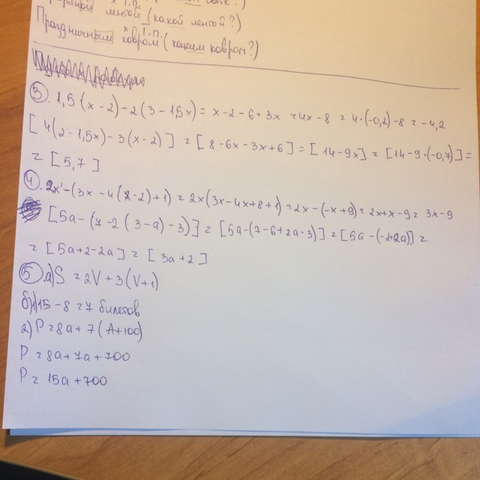 лентой (какой лентой?)
Праздничным ковром (каким ковром?)
3). 1,5(x-2)-2(3-1,5x)= x-2-6+3x =4x-8 = 4·(-0,2)-8 = -4,2
[4(2-1,5x)-3(x-2)] = [8-6x-3x+6] = [14-9x] = [14-9·(-0,7)] =
= [5,7]
4). 2x-(3x-4(x-2)+1) = 2x(3x-4x+8+1) =2x-(-x+9)=2x+x-9= 3x-9
[5a-(7-2(3-a)-3)] = [5a-(7-6+2a-3)] = [5a-(-2+2a)] =
= [5a+2-2a] = [3a+2]
5) a) S = 2V + 3(V+1)
б) 1) 15-8=7 билетов
2) P=8a+7(A+100)
P=8a+7a+700
P=15a+700